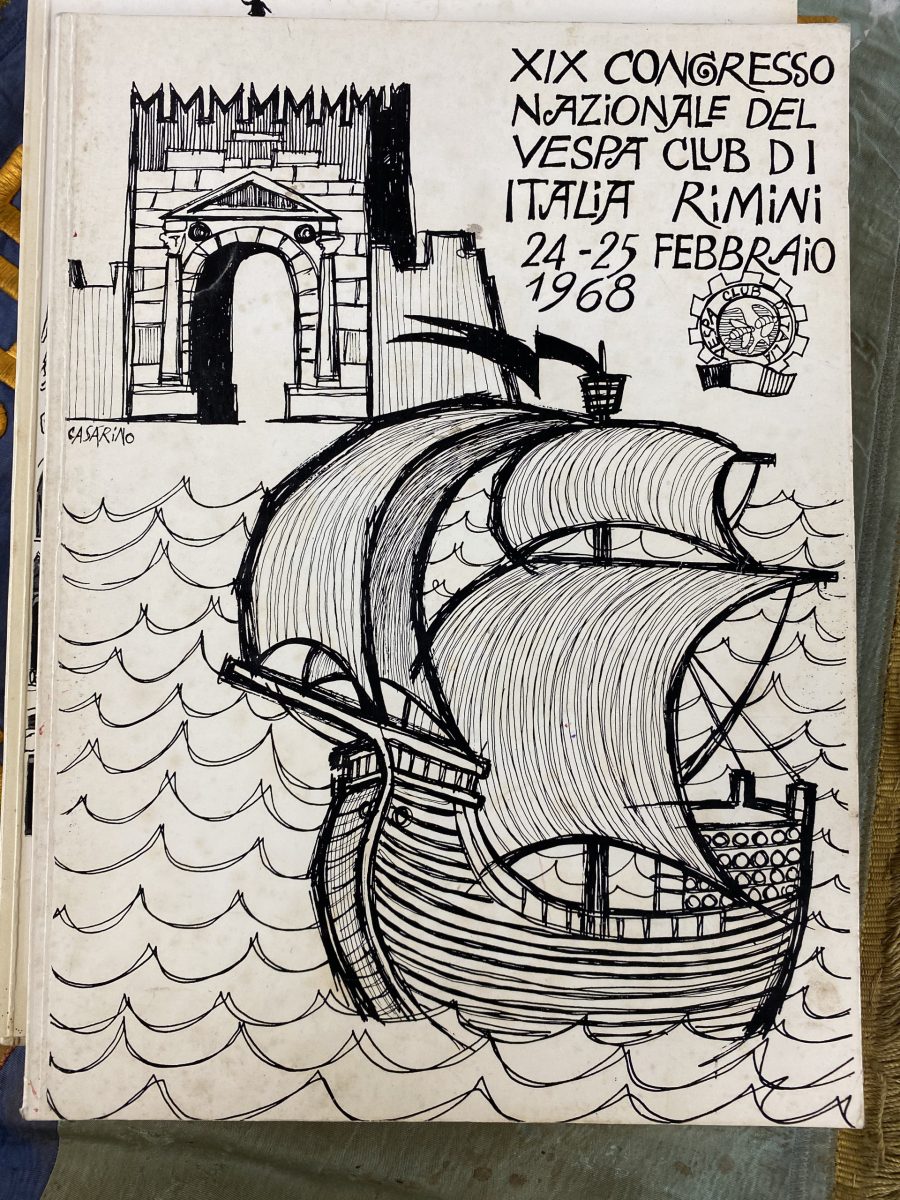 XIX CONGRESSO
NAZiONALE DEL
VESPA CLUB DI
ITALiA RiMiNi
24-25 FEBBRAiO
1968
VESPA CLUB D'ITALIA
CASARiNO